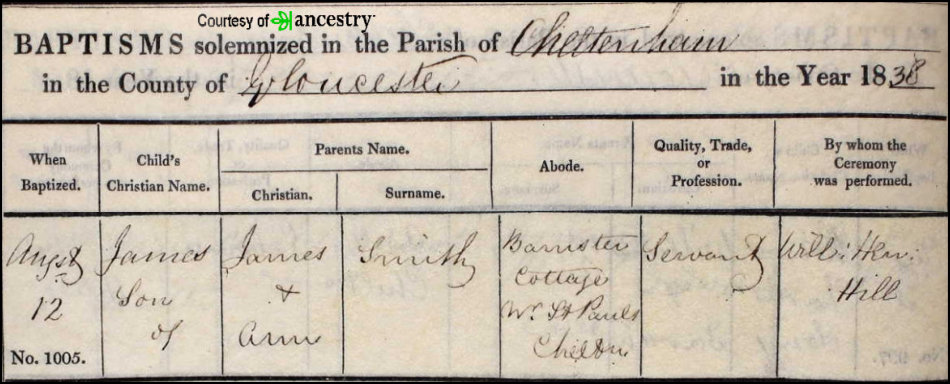 Courtesy of ancestry
BAPTISMS solemnized in the Parish of Cheltenham
in the County of Gloucester in the Year 1838
When Baptized.
Child's Christian Name.
Parents Name.
Christian.
Surname.
Abode.
Quality, Trade, or Profession.
By whom the Ceremony was performed.
Augst
12
No. 1005.
James
Son
of
James
&
Ann
Smith
Banister
Cottage
Nr St Pauls
Chelton
Servant
Will: Hen:
Hill